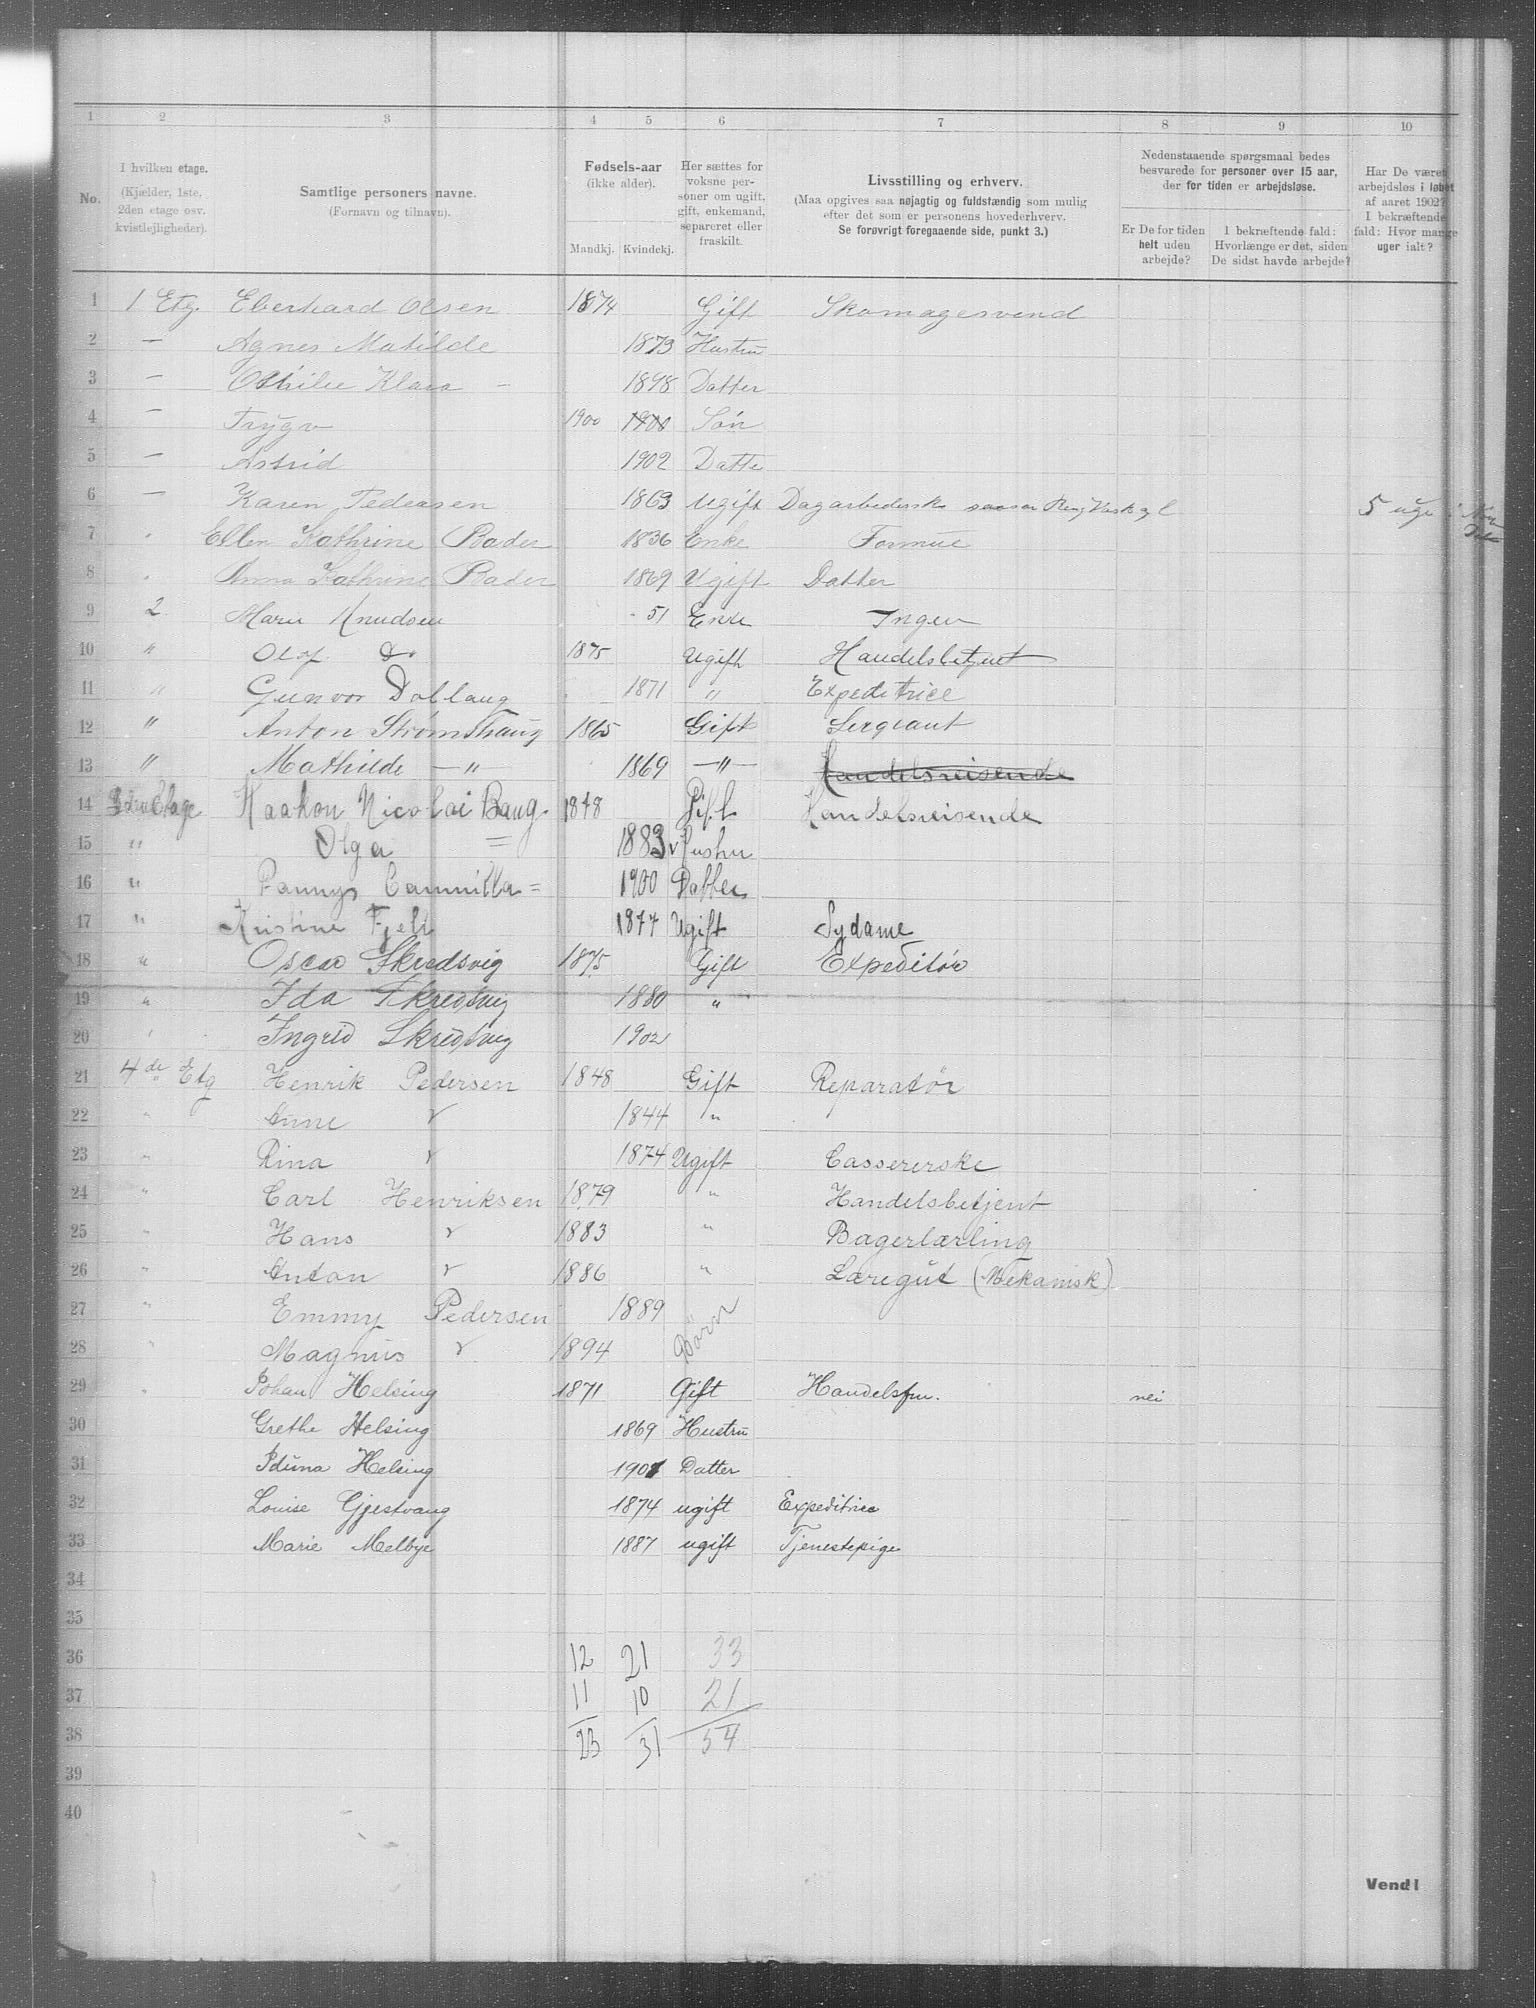 1 2 3 4 5 6 7 8 9 10
No.
I hvilken etage.
(Kjælder, 1ste, 2den etage osv. kvistlejligheder).
Samtlige personers navne.
(Fornavn og tilnavn).
Fødsels-aar
(ikke alder).
Mandkj. Kvindekj.
Her sættes for voksne personer om ugift, gift, enkemand, separeret eller fraskilt.
Livsstilling og erhverv.
(Maa opgives saa nøjagtig og fuldstændig som mulig
efter det som er personens hovederhverv.
Se forøvrigt foregaaende side, punkt 3.)
Nedenstaaende spørgsmaal bedes
besvarede for personer over 15 aar,
der for tiden er arbejdsløse.
Er De for tiden helt uden arbejde?
I bekræftende fald: Hvorlænge er det, siden De sidst havde arbejde?
Har De været arbejdsløs i løbet af aaret 1902? I bekræftende fald: Hvor mange uger ialt?
1 1 Etg. Eberhard Olsen 1874 Gift Skomagesvend
2 — Agnes Matilde 1873 Hustru
3 — Othilie Klara — 1898 Datter
4 — Trygv 1900 1900 Søn
5 — Astrid 1902 Datte
6 — Karen Pedersen 1863 Ugift Dagarbederske 5 uge i
7 Ellen Kathrine Bader 1836 Enke Formue
8 Anna Kathrine Bader 1869 Ugift Datter
9 2 Marie Knudsen - 51 Enke Ingen
10 " Olof Do 1875 Ugift Handelsbetjent
11 " Gunvor Dollaug 1871 " Expeditrice
12 " Anton Strømshaug 1865 Gift Sergeant
13 " Mathilde —"— 1869 —"— Handelsreisende
14 Etage Haakon Nicolai Baug 1848 Gift Handelsreisende
15 " Olga = 1883 Hustru
16 " Fanny Cammilla = 1900 Datter
17 " Kristine Fjeld 1877 Ugift Sydame
18 " Oscar Skredsvig 1875 Gift Expeditør
19 " Ida Skredsvig 1880 "
20 Ingrid Skredsvig 1902
21 4de Etg Henrik Pedersen 1848 Gift Reparatør
22 " Anne " 1844 "
23 " Rina " 1874 Ugift Cassererske
24 " Carl Henriksen 1879 " Handelsbetjent
25 " Hans " 1883 " Bagerlærling
26 " Anton " 1886 " Læregut (Mekanisk)
27 " Emmy Pedersen 1889 Børn
28 " Magnus " 1894
29 " Johan Helsing 1871 Gift Handelsfm. nei
30 Grethe Helsing 1869 Hustru
31 Iduna Helsing 1901 Datter
32 Louise Gjestvang 1874 ugift Expeditrice
33 Marie Melbye 1887 ugift Tjenestepige
34
35
36 12 21 33
37 11 10 21
38 23 31 54
39
40
Vend!